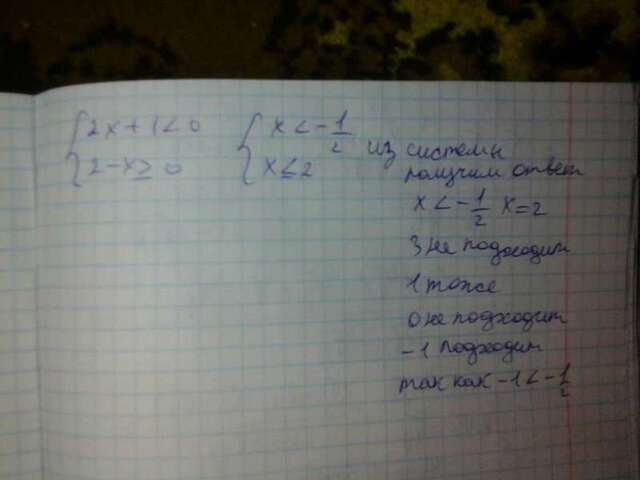 2x+1<0
2-x≥0
x<-1/2
x≤2
из системы
получим ответ
x<-1/2 x=2
3 не подходит
1 тоже
0 не подходит
-1 подходит
так как -1<-1/2